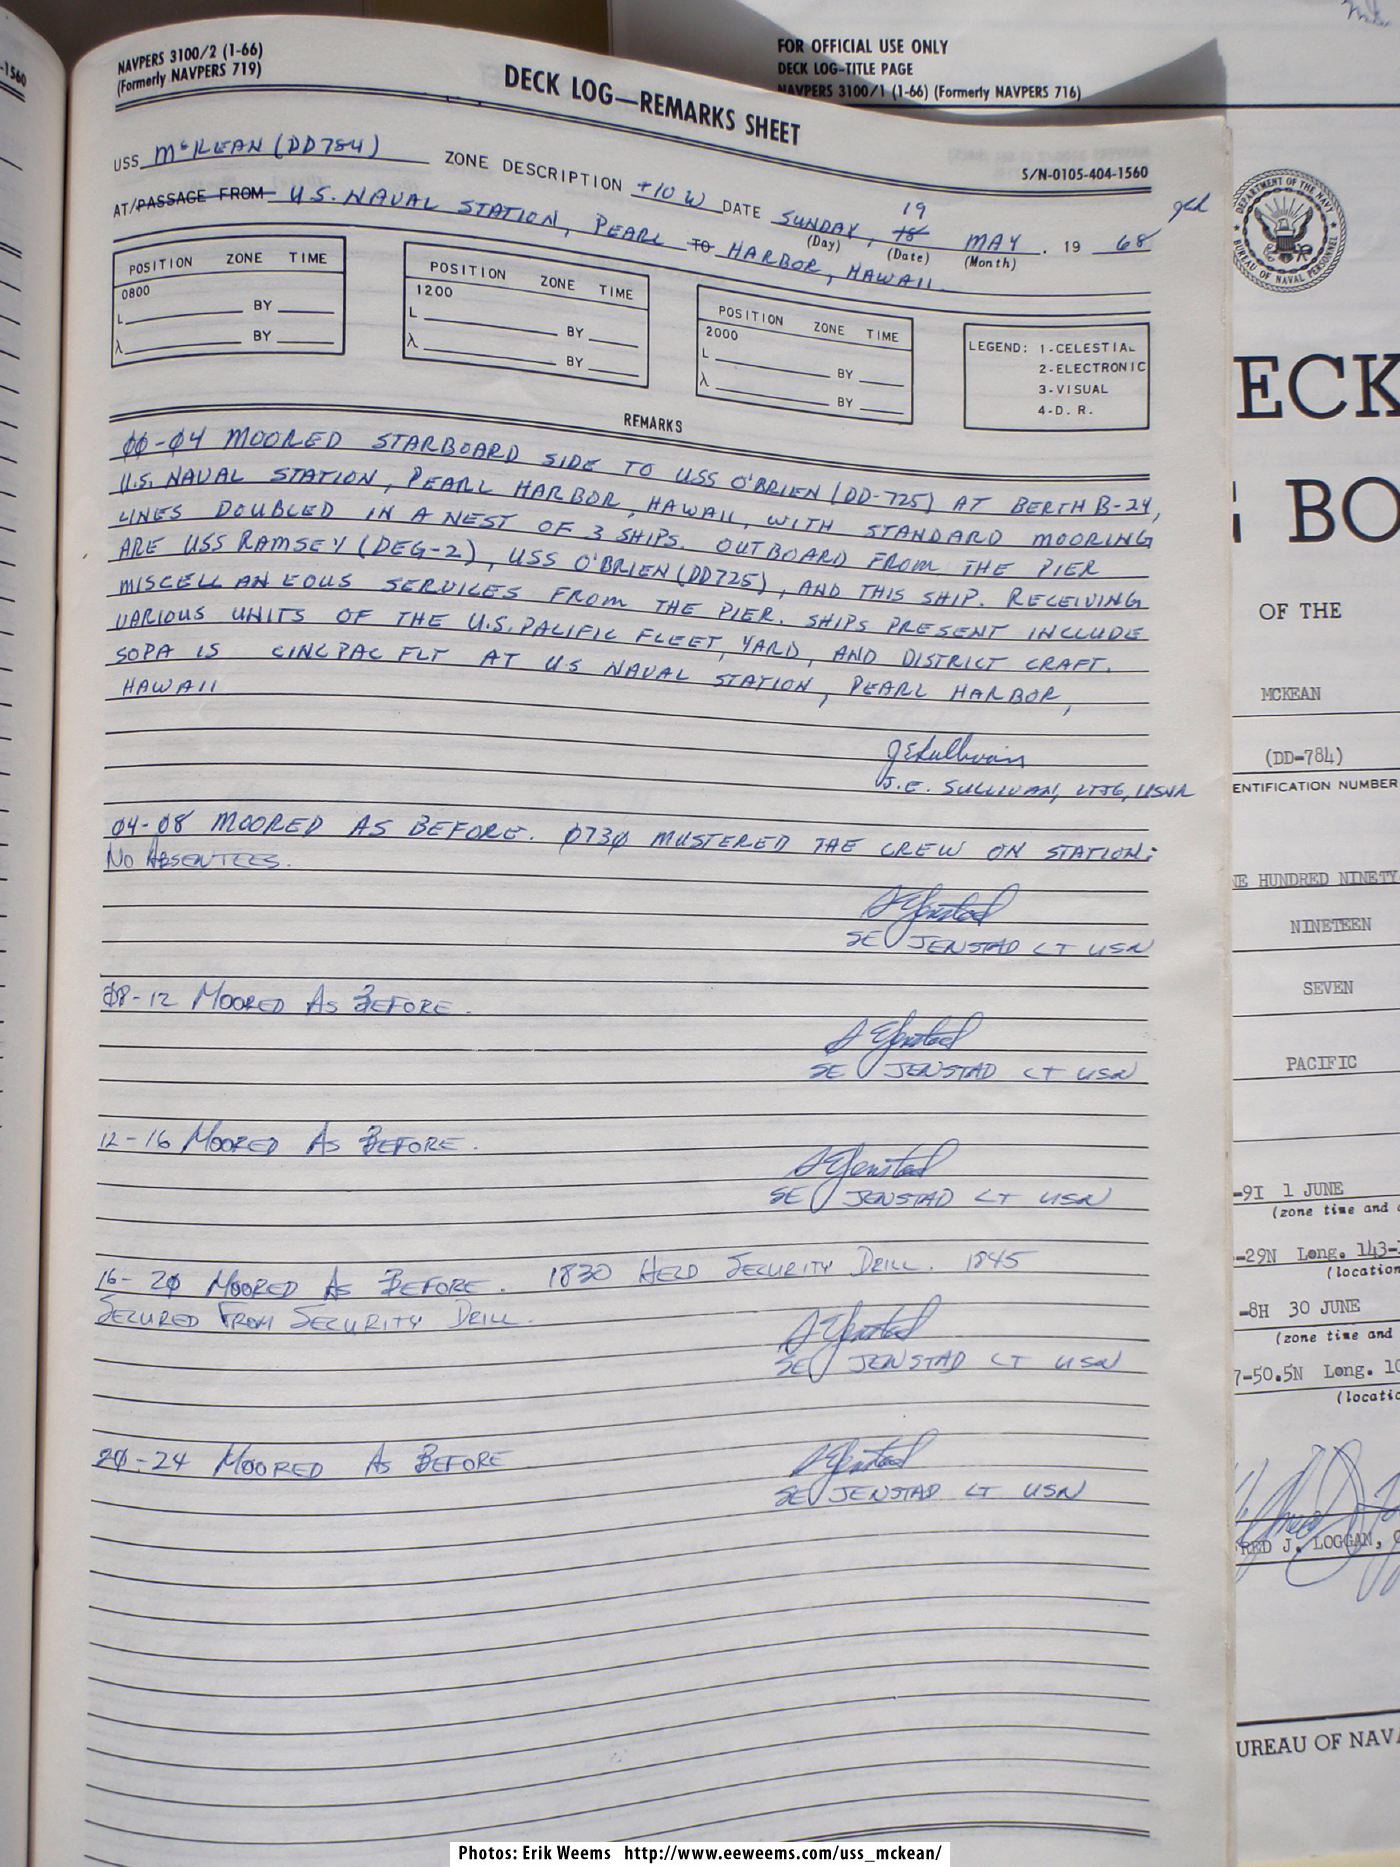 -1560
NAVPERS 3100/2 (1-66)
(Formerly NAVPERS 719)
DECK LOG—REMARKS SHEET
S/N-0105-404-1560
USS McKEAN (DD784) ZONE DESCRIPTION +10 W DATE SUNDAY, 18 19 MAY . 19 68
(Day) (Date) (Month)
AT/PASSAGE FROM U.S. NAVAL STATION, PEARL TO HARBOR, HAWAII.
POSITION ZONE TIME
0800
L BY
λ BY
POSITION ZONE TIME
1200
L BY
λ BY
POSITION ZONE TIME
2000
L BY
λ BY
LEGEND: 1-CELESTIAL
2-ELECTRONIC
3-VISUAL
4-D. R.
REMARKS
00-04 MOORED STARBOARD SIDE TO USS O'BRIEN (DD-725) AT BERTH B-24,
U.S. NAVAL STATION, PEARL HARBOR, HAWAII, WITH STANDARD MOORING
LINES DOUBLED IN A NEST OF 3 SHIPS. OUTBOARD FROM THE PIER
ARE USS RAMSEY (DEG-2), USS O'BRIEN (DD725), AND THIS SHIP. RECEIVING
MISCELLANEOUS SERVICES FROM THE PIER. SHIPS PRESENT INCLUDE
VARIOUS UNITS OF THE U.S. PACIFIC FLEET, YARD, AND DISTRICT CRAFT.
SOPA IS CINCPACFLT AT US NAVAL STATION, PEARL HARBOR,
HAWAII
JESullivan
J.E. SULLIVAN, LTJG, USNR
04-08 MOORED AS BEFORE. 0730 MUSTERED THE CREW ON STATION:
NO ABSENTEES.
SEJenstad
SE JENSTAD LT USN
08-12 MOORED AS BEFORE.
SEJenstad
SE JENSTAD LT USN
12-16 MOORED AS BEFORE.
SEJenstad
SE JENSTAD LT USN
16-20 MOORED AS BEFORE. 1830 HELD SECURITY DRILL. 1845
SECURED FROM SECURITY DRILL.
SEJenstad
SE JENSTAD LT USN
20-24 MOORED AS BEFORE
SEJenstad
SE JENSTAD LT USN
FOR OFFICIAL USE ONLY
DECK LOG-TITLE PAGE
NAVPERS 3100/1 (1-66) (Formerly NAVPERS 716)
DEPARTMENT OF THE NAVY
BUREAU OF NAVAL PERSONNEL
ECK
BO
OF THE
MCKEAN
(DD-784)
ENTIFICATION NUMBER
NE HUNDRED NINETY
NINETEEN
SEVEN
PACIFIC
-9I 1 JUNE
(zone time and
-29N Long. 143-
(location
-8H 30 JUNE
(zone time and
7-50.5N Long. 10
(locatio
RED J. LOGGAN, C
UREAU OF NAV
Photos: Erik Weems http://www.eeweems.com/uss_mckean/